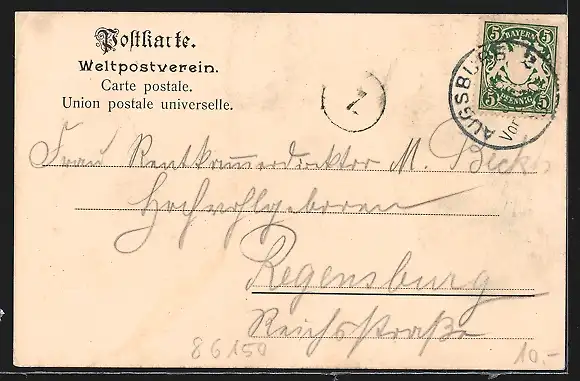 Postkarte.
Weltpostverein.
Carte postale.
Union postale universelle.
5 BAYERN 5
5 PFENNIG 5
AUGSBURG
Vor
Z
Frau Rentkammerdirektor M. Becker
Hochwohlgeboren
Regensburg
Reichsstraße
86150
10.-